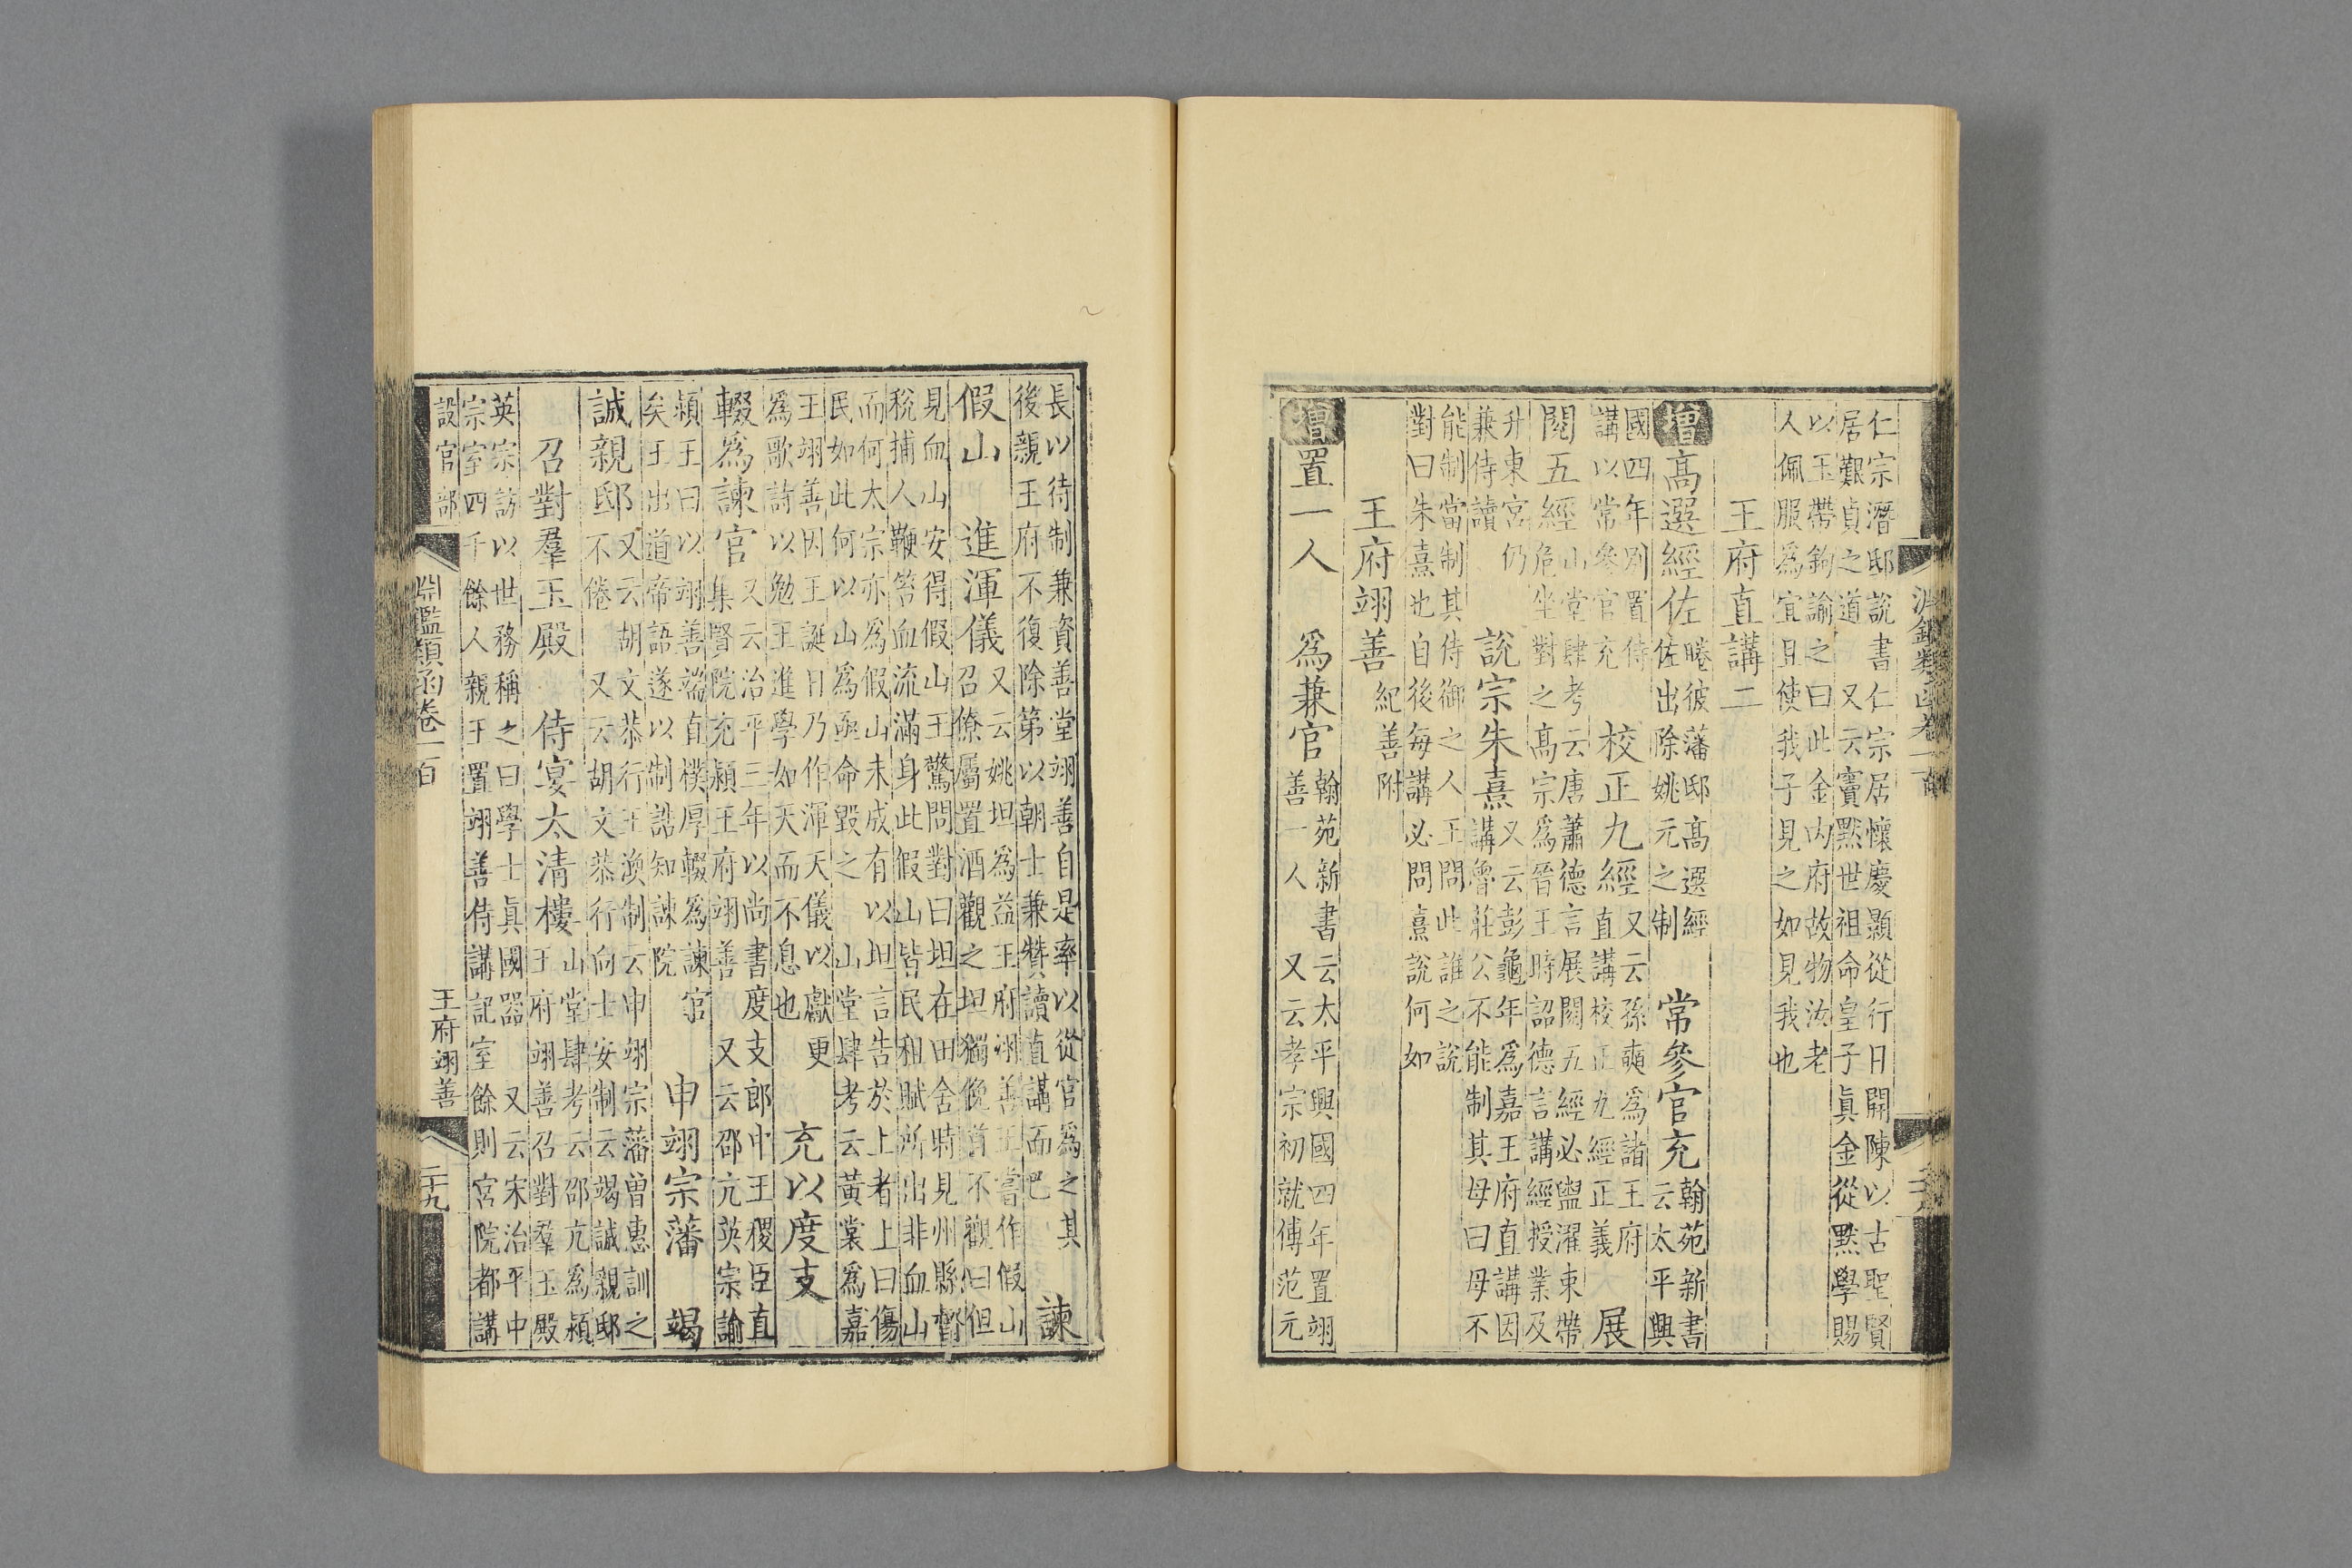 仁宗潛邸說書仁宗居懷慶顯從行日開陳以古聖賢
居艱貞之道 又云竇黙世祖命皇子眞金從黙學賜
以玉帶鉤諭之曰此金內府故物汝老
人佩服爲宜且使我子見之如見我也
王府直講二
增高選經佐
睠彼藩邸高選經
佐出除姚元之制
常參官充
翰苑新書
云太平興
國四年別置侍
講以常參官充
校正九經
又云孫奭爲諸王府
直講校正九經正義
展
閱五經
山堂肆考云唐蕭德言展閱五經必盥濯束帶
危坐對之高宗爲晉王時詔德言講經授業及
升東宮仍
兼侍讀
說宗朱熹
又云彭龜年爲嘉王府直講因
講魯莊公不能制其母曰母不
能制當制其侍御之人王問此誰之說
對曰朱熹也自後每講必問熹說何如
王府翊善
紀善附
增置一人 爲兼官
翰苑新書云太平興國四年置翊
善一人 又云孝宗初就傅范元
長以待制兼資善堂翊善自是率以從官爲之其
後親王府不復除第以朝士兼贊讀直講而巴
諫
假山 進渾儀
又云姚坦爲益王府翊善王嘗作假山
召僚屬置酒觀之坦獨俛首不觀曰但
見血山安得假山王驚問對曰坦在田舍時見州縣督
稅捕人鞭笞血流滿身此假山皆民租賦所出非血山
而何太宗亦爲假山未成有以坦言告於上者上曰傷
民如此何以山爲亟命毀之 山堂肆考云黃裳爲嘉
王翊善因王誕日乃作渾天儀以獻更
爲歌詩以勉王進學如天而不息也
充以度支
輟爲諫官
又云治平三年以尚書度支郎中王稷臣直
集賢院充潁王府翊善 又云邵亢英宗諭
潁王曰以翊善端直樸厚輟爲諫官
矣王出道帝語遂以制誥知諫院
申翊宗藩 竭
誠親邸
又云胡文恭行王渙制云申翊宗藩曾惠訓之
不倦 又云胡文恭行向士安制云竭誠親邸
召對羣玉殿 侍宴太清樓
山堂肆考云邵亢爲潁
王府翊善召對羣玉殿
英宗訪以世務稱之曰學士眞國器 又云宋治平中
宗室四千餘人親王置翊善侍講記室餘則宮院都講
設官部
淵鑑類函卷一百
王府翊善
二十九